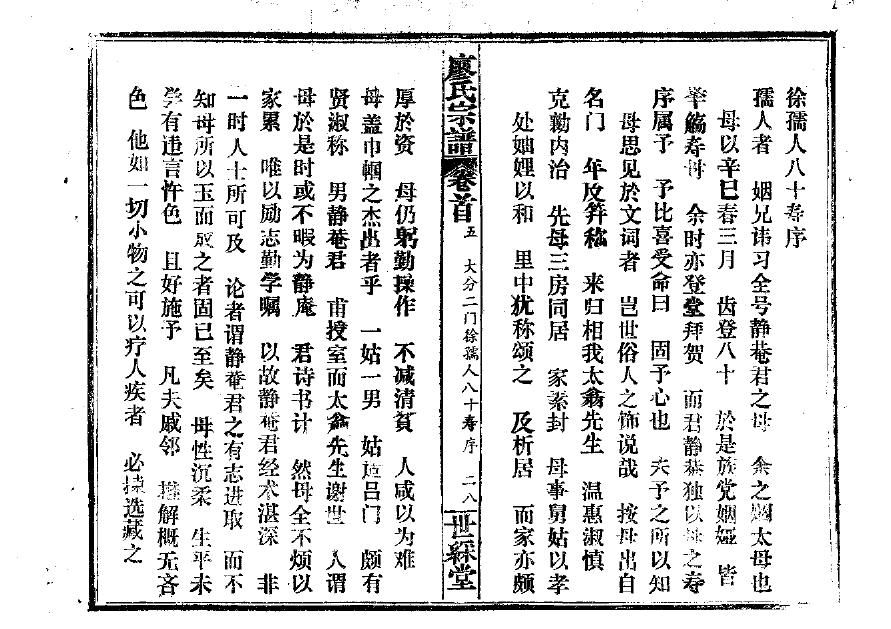 徐孺人八十寿序
孺人者 姻兄讳习全号静菴君之母 余之姻太母也
母以辛巳春三月 齿登八十 於是族党姻娅 皆
举觞寿母 余时亦登堂拜贺 而君静菴独以母之寿
序属予 予比喜受命曰 固予心也 夫予之所以知
母思见於文词者 岂世俗人之饰说哉 按母出自
名门 年及笄秾 来归相我太翁先生 温惠淑慎
克勷内治 先母三房同居 家素封 母事舅姑以孝
处妯娌以和 里中犹称颂之 及析居 而家亦颇
廖氏宗譜 卷首 五 大分二门徐孺人八十寿序 二八 世綵堂
厚於资 母仍躬勤操作 不减清贫 人咸以为难
母盖巾帼之杰出者乎 一姑一男 姑适吕门 颇有
贤淑称 男静菴君 甫授室而太翁先生谢世 人谓
母於是时或不暇为静庵 君诗书计 然母全不烦以
家累 唯以励志勤学嘱 以故静菴君经术湛深 非
一时人士所可及 论者谓静菴君之有志进取 而不
知母所以玉而成之者固已至矣 母性沉柔 生平未
学有违言忤色 且好施予 凡夫戚邻 解概无吝
色 他如一切小物之可以疗人疾者 必拣选藏之